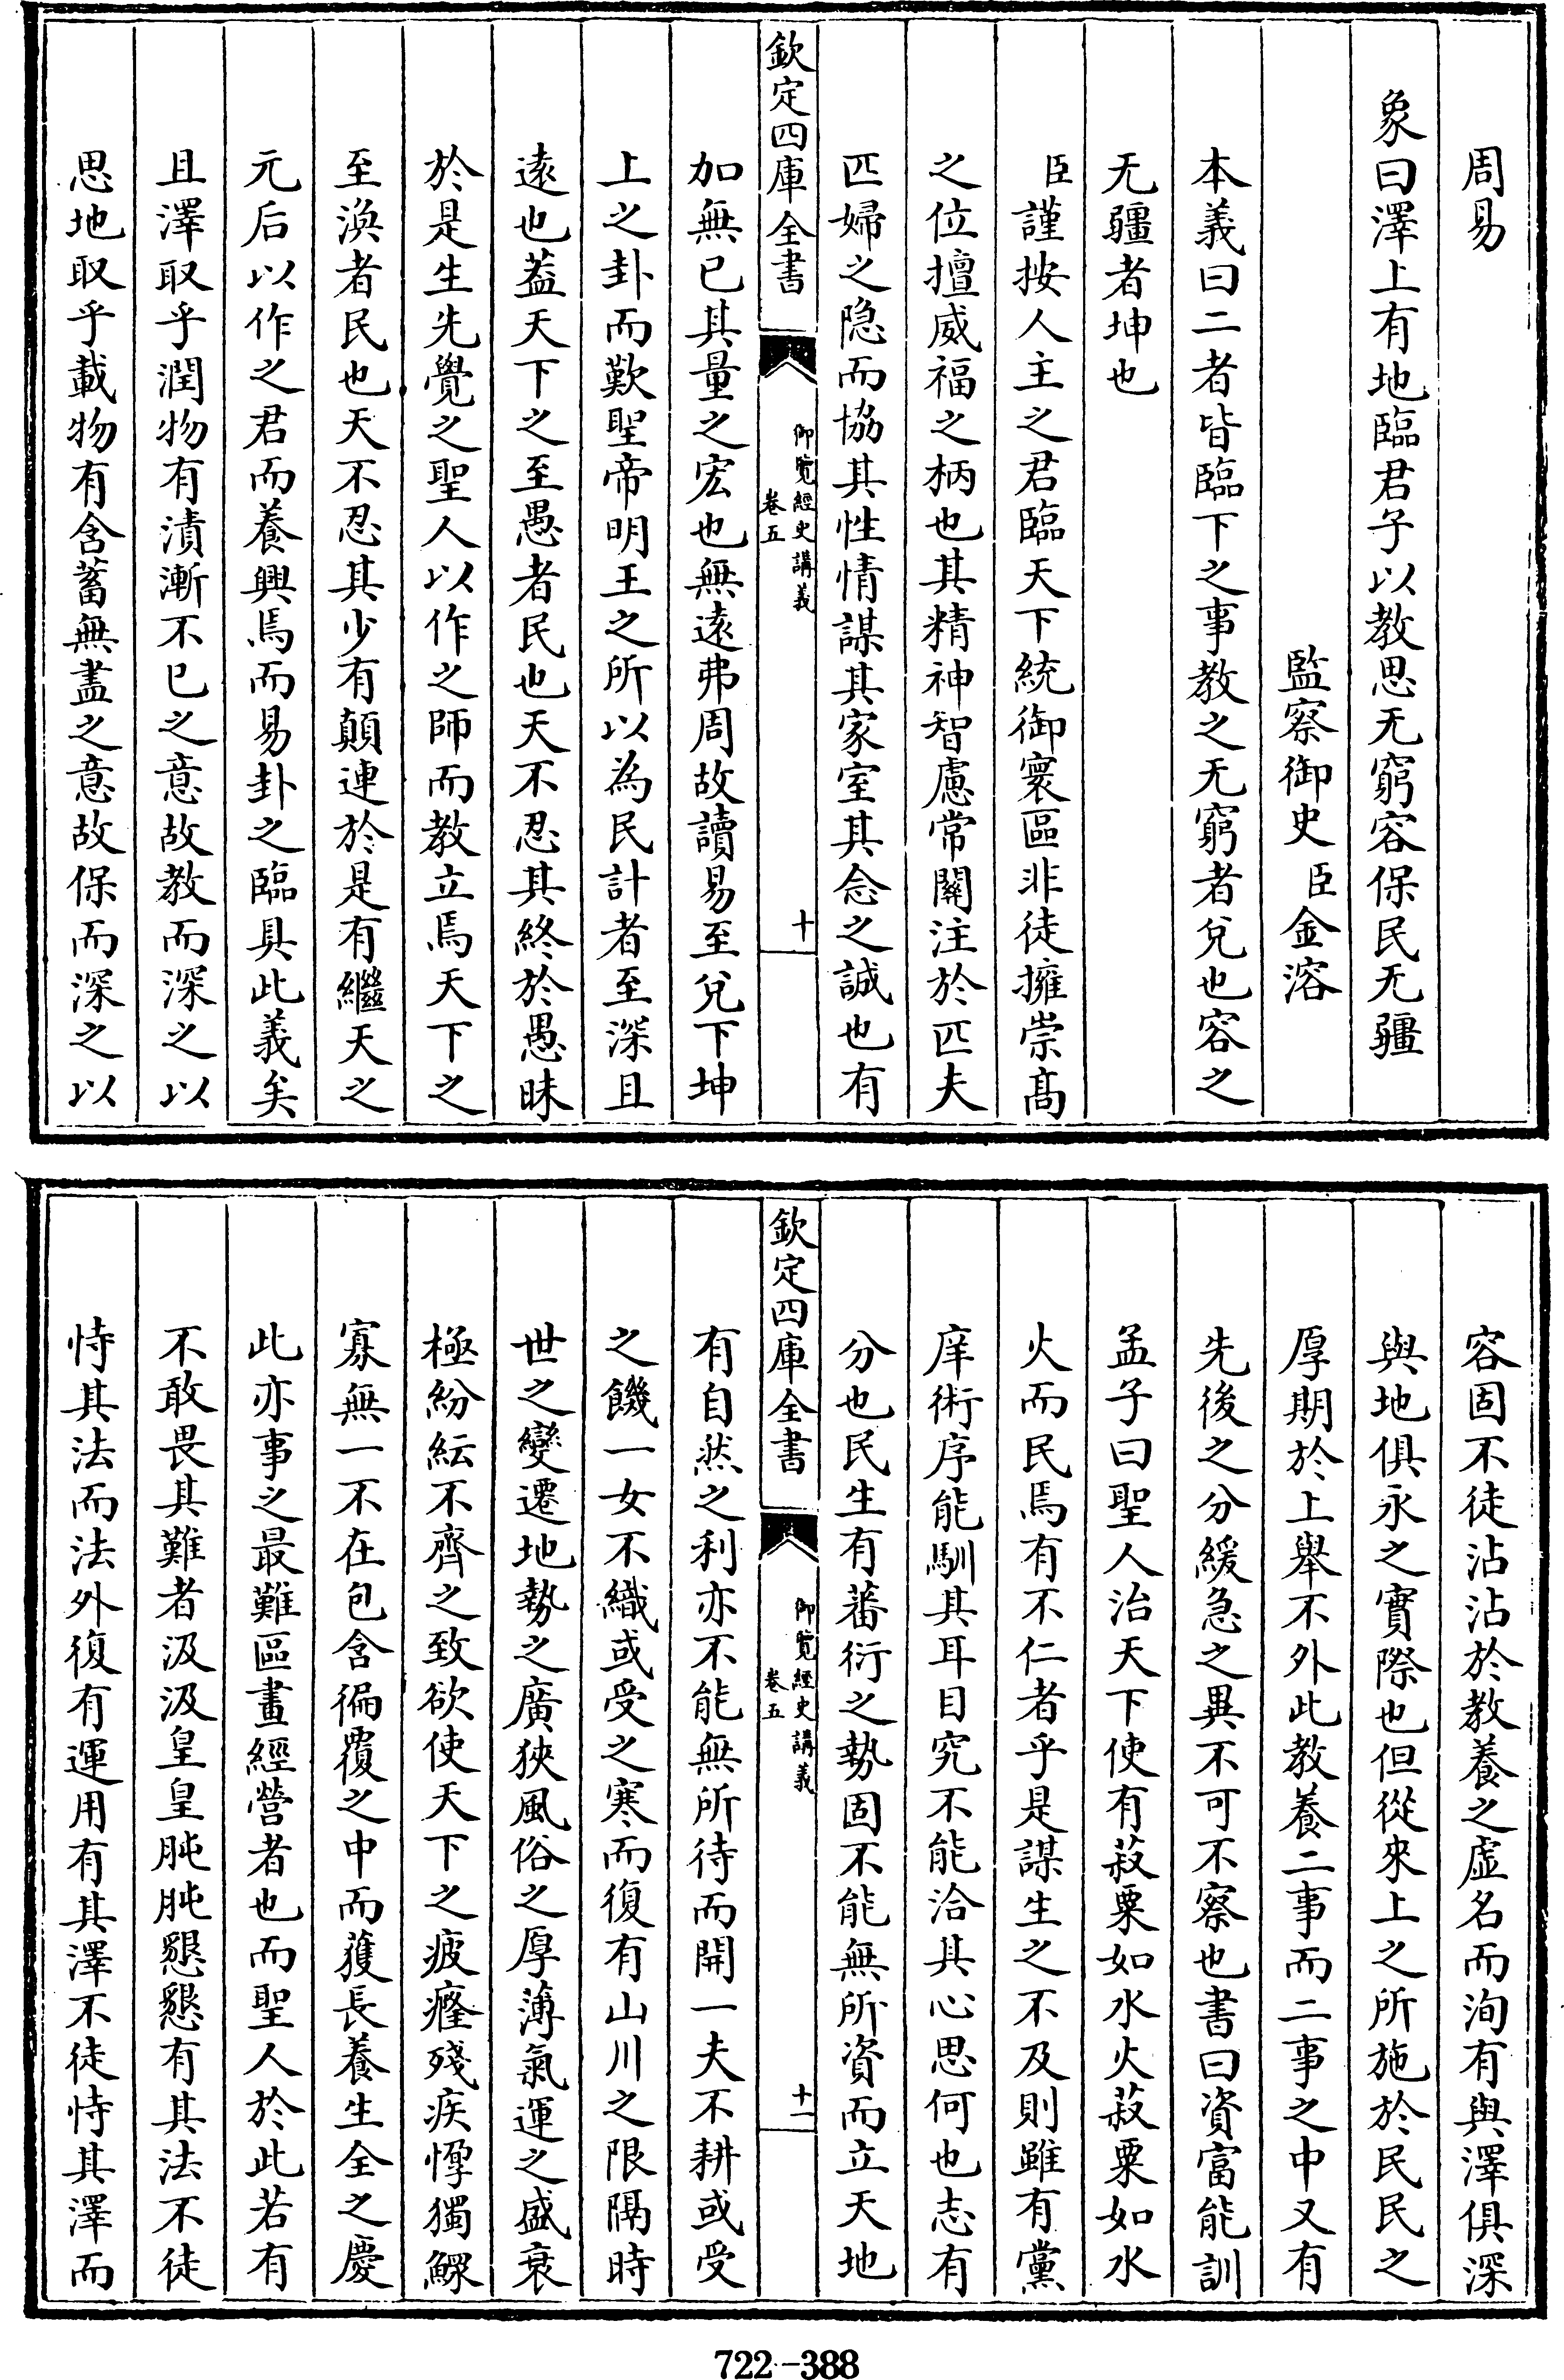 周易
象曰澤上有地臨君子以教思无窮容保民无疆
監察御史臣金溶
本義曰二者皆臨下之事教之无窮者兌也容之
无疆者坤也
臣謹按人主之君臨天下統御寰區非徒擁崇髙
之位擅威福之柄也其精神智慮常關注於匹夫
匹婦之隐而協其性情謀其家室其念之誠也有
欽定四庫全書
御覽經史講義
卷五
十
加無已其量之宏也無遠弗周故讀易至兌下坤
上之卦而歎聖帝明王之所以為民計者至深且
遠也葢天下之至愚者民也天不忍其終於愚昧
於是生先覺之聖人以作之師而教立焉天下之
至渙者民也天不忍其少有顛連於是有繼天之
元后以作之君而養興焉而易卦之臨具此義矣
且澤取乎潤物有漬漸不已之意故教而深之以
思地取乎載物有含蓄無盡之意故保而深之以
容固不徒沾沾於教養之虛名而洵有與澤俱深
與地俱永之實際也但從來上之所施於民民之
厚期於上舉不外此教養二事而二事之中又有
先後之分緩急之異不可不察也書曰資富能訓
孟子曰聖人治天下使有菽粟如水火菽粟如水
火而民焉有不仁者乎是謀生之不及則雖有黨
庠術序能馴其耳目究不能洽其心思何也志有
分也民生有蕃衍之勢固不能無所資而立天地
欽定四庫全書
御覽經史講義
卷五
十一
有自然之利亦不能無所待而開一夫不耕或受
之饑一女不織或受之寒而復有山川之限隔時
世之變遷地勢之廣狹風俗之厚薄氣運之盛衰
極紛紜不齊之致欲使天下之疲癃殘疾惸獨鰥
寡無一不在包含徧覆之中而獲長養生全之慶
此亦事之最難區畫經營者也而聖人於此若有
不敢畏其難者汲汲皇皇肫肫懇懇有其法不徒
恃其法而法外復有運用有其澤不徒恃其澤而
722-388